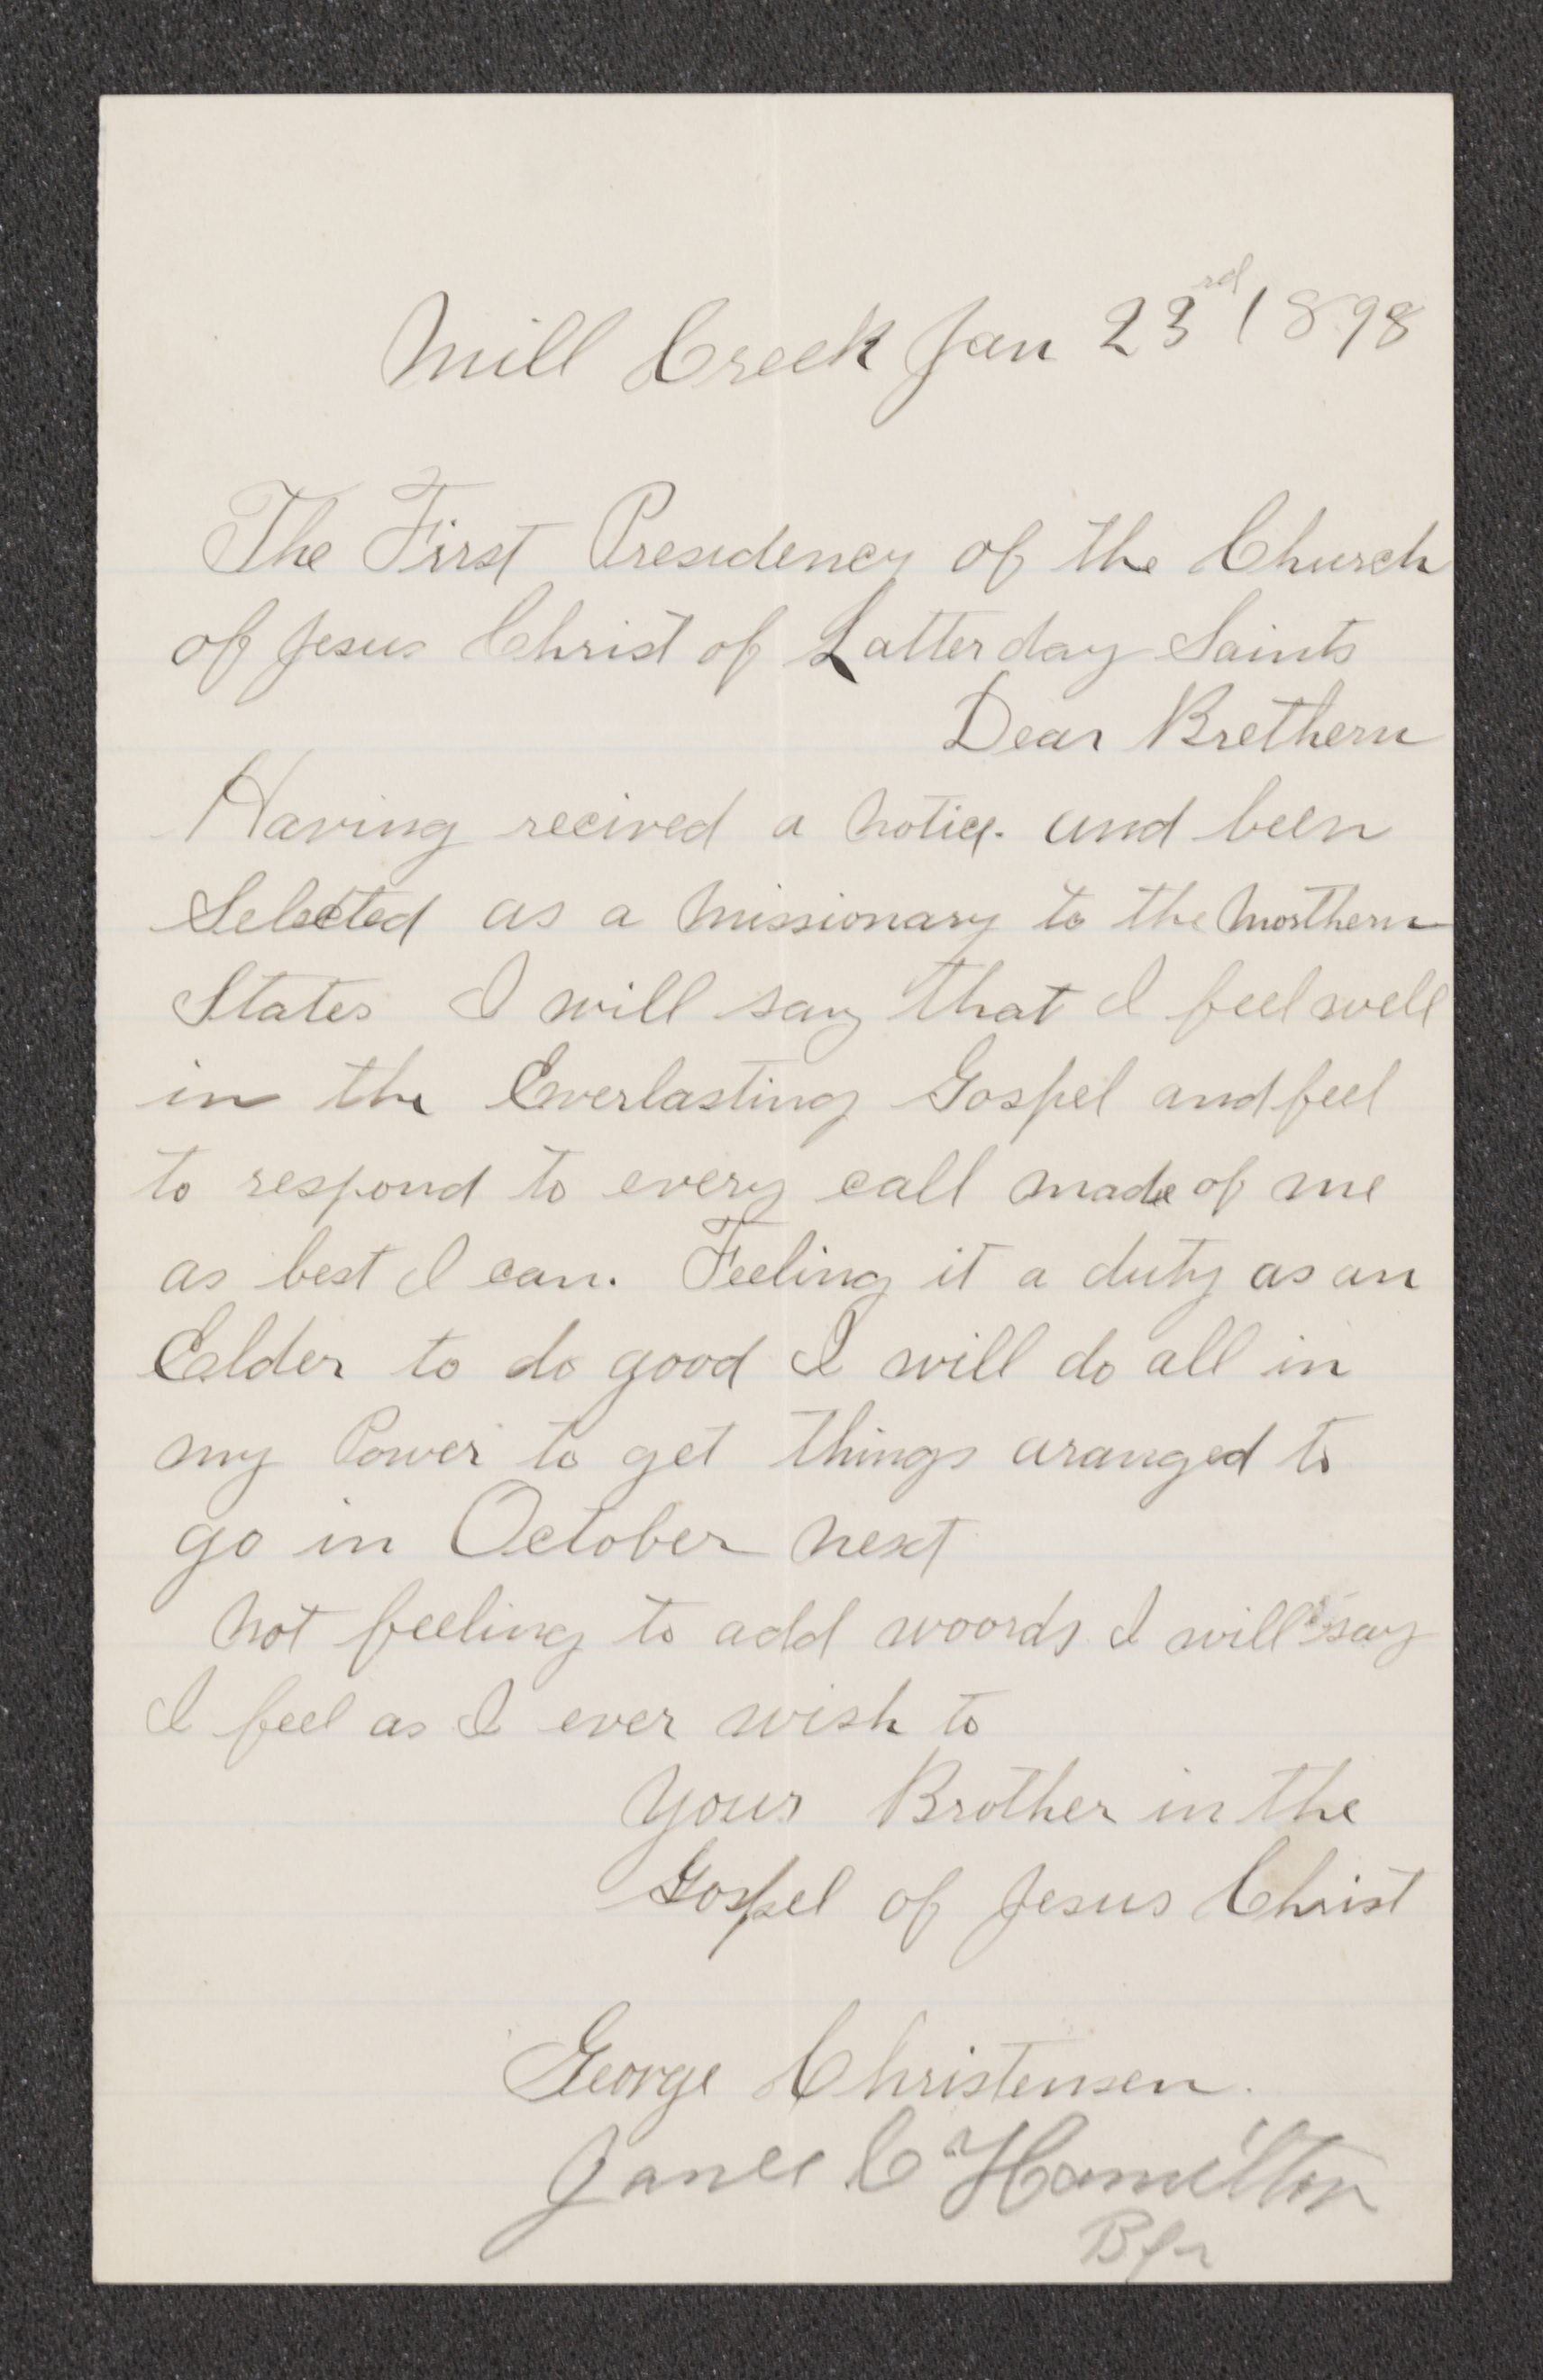 Mill Creek Jan 23rd 1898
The First Presidency of the Church
of Jesus Christ of Latter day Saints
Dear Brethern
Having recived a notice. and been
Selected as a missionary to the Northern
States I will say that I feel well
in the Everlasting Gospel and feel
to respond to every call made of me
as best I can. Feeling it a duty as an
Elder to do good I will do all in
my Power to get things aranged to
go in October next
Not feeling to add woords I will say
I feel as I ever wish to
Your Brother in the
Gospel of Jesus Christ
George Christensen.
James C Hamilton
Bp